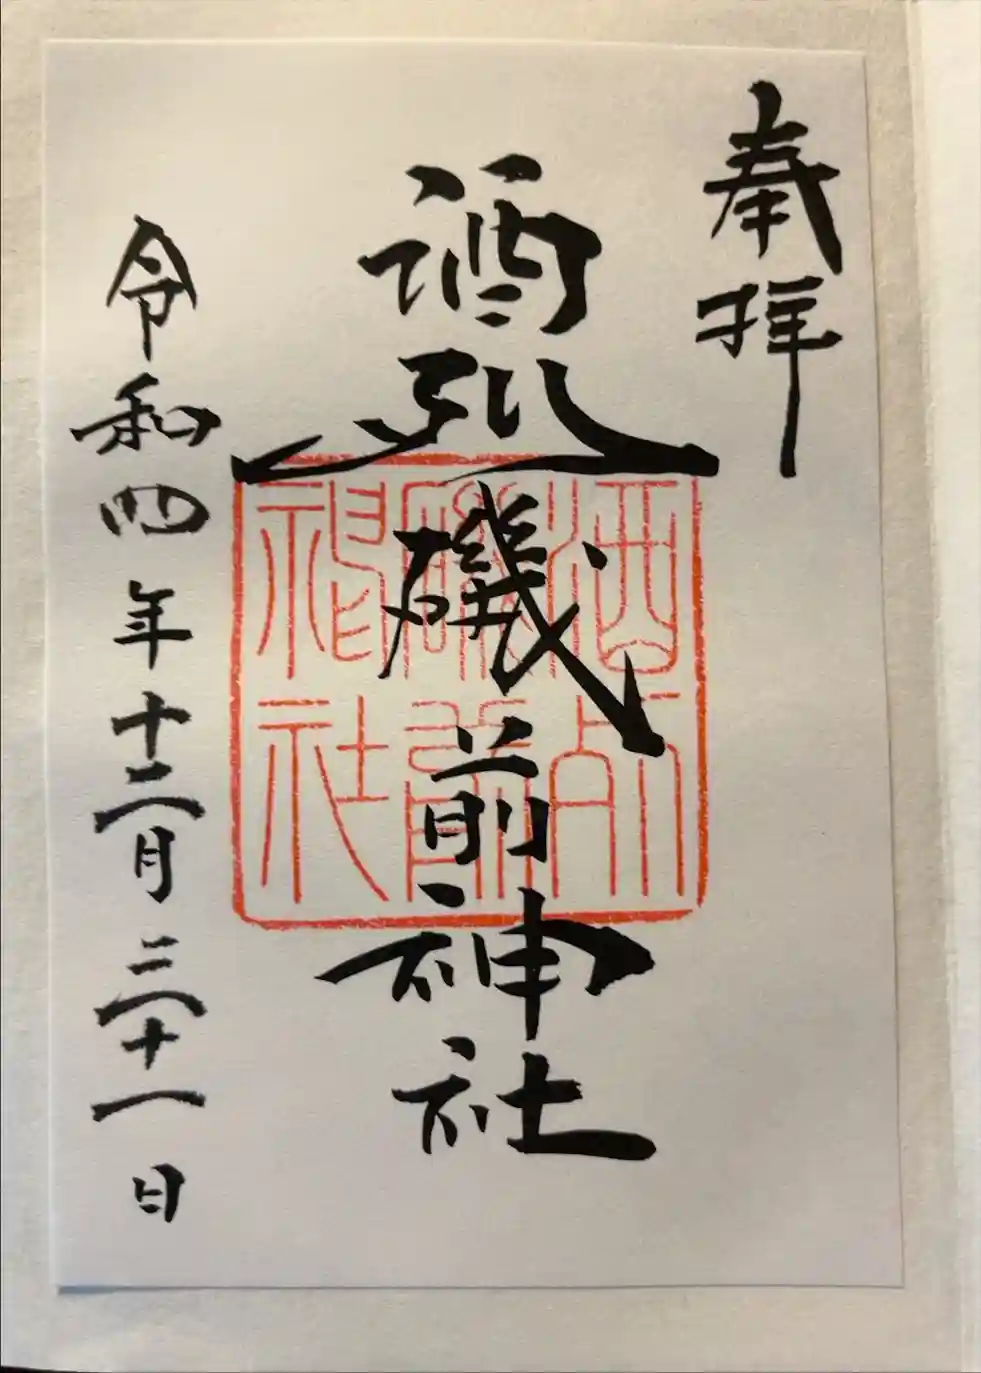 奉拝
酒列磯前神社
令和四年十二月三十一日
酒列
磯前
神社